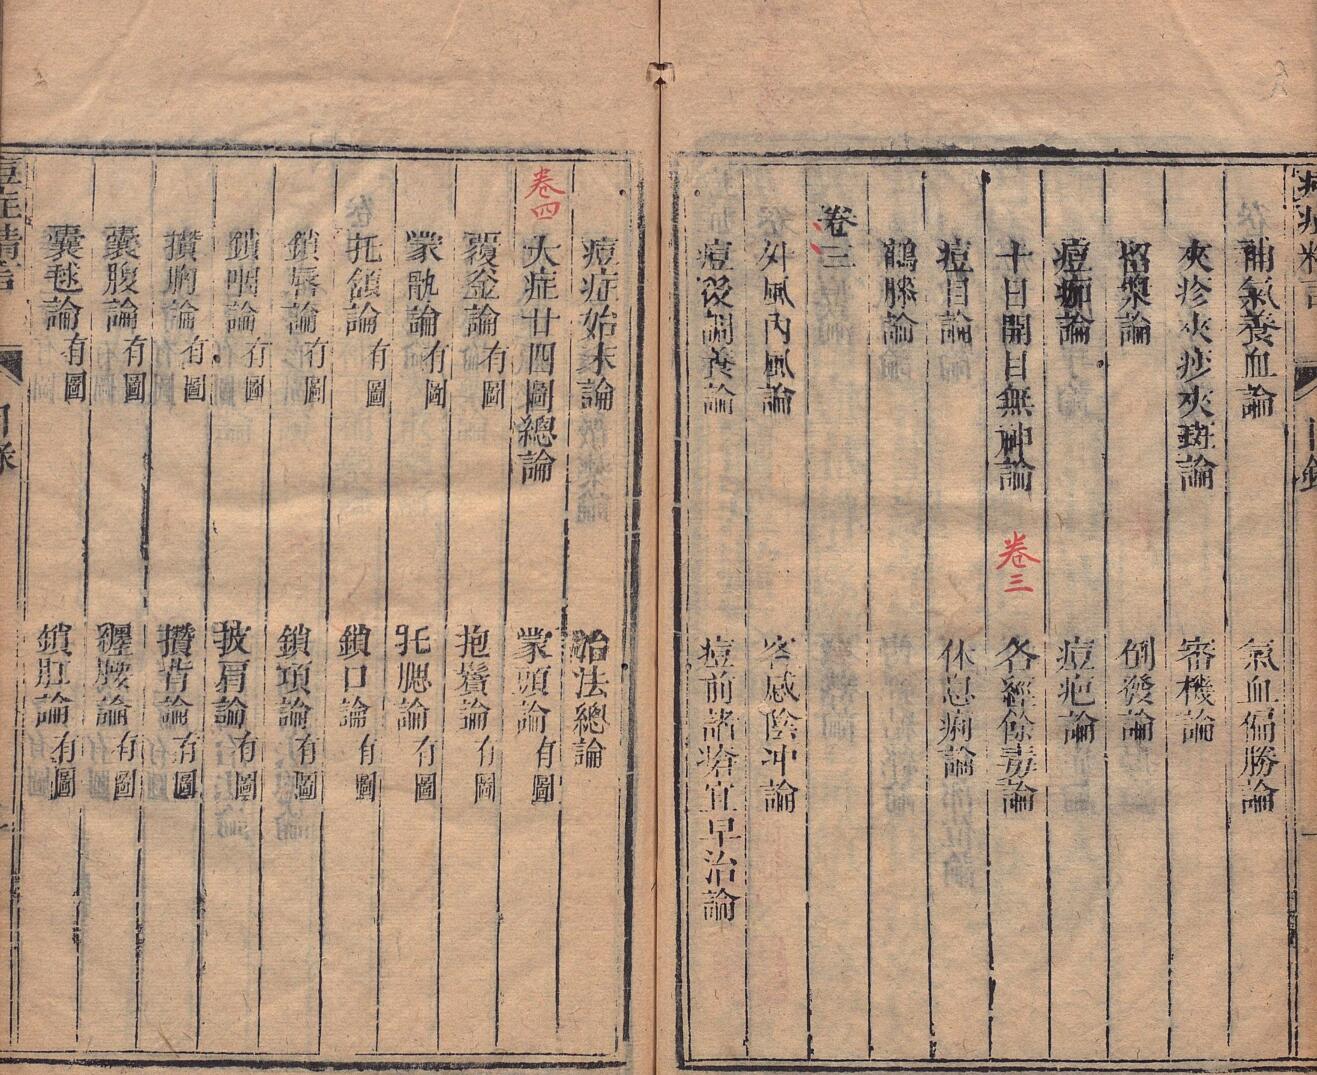 補氣養血論　氣血偏勝論
夾疹夾痧夾斑論　審機論
招漿論　倒發論
痘痂論　痘疤論
十日開目無神論　卷三　各經餘毒論
痘目論　休息痢論
鶴膝論
卷三
外風內風論　客感陰冲論
痘後調養論　痘前諸瘡宜早治論
痘症始末論　治法總論
卷四
大症廿四圖總論　蒙頭論有圖
覆釜論有圖　抱鬢論有圖
蒙骩論有圖　托腮論有圖
托頷論有圖　鎖口論有圖
鎖唇論有圖　鎖項論有圖
鎖咽論有圖　披肩論有圖
攢胸論有圖　攢背論有圖
囊腹論有圖　纏腰論有圖
囊毬論有圖　鎖肛論有圖
痘症精言
目錄